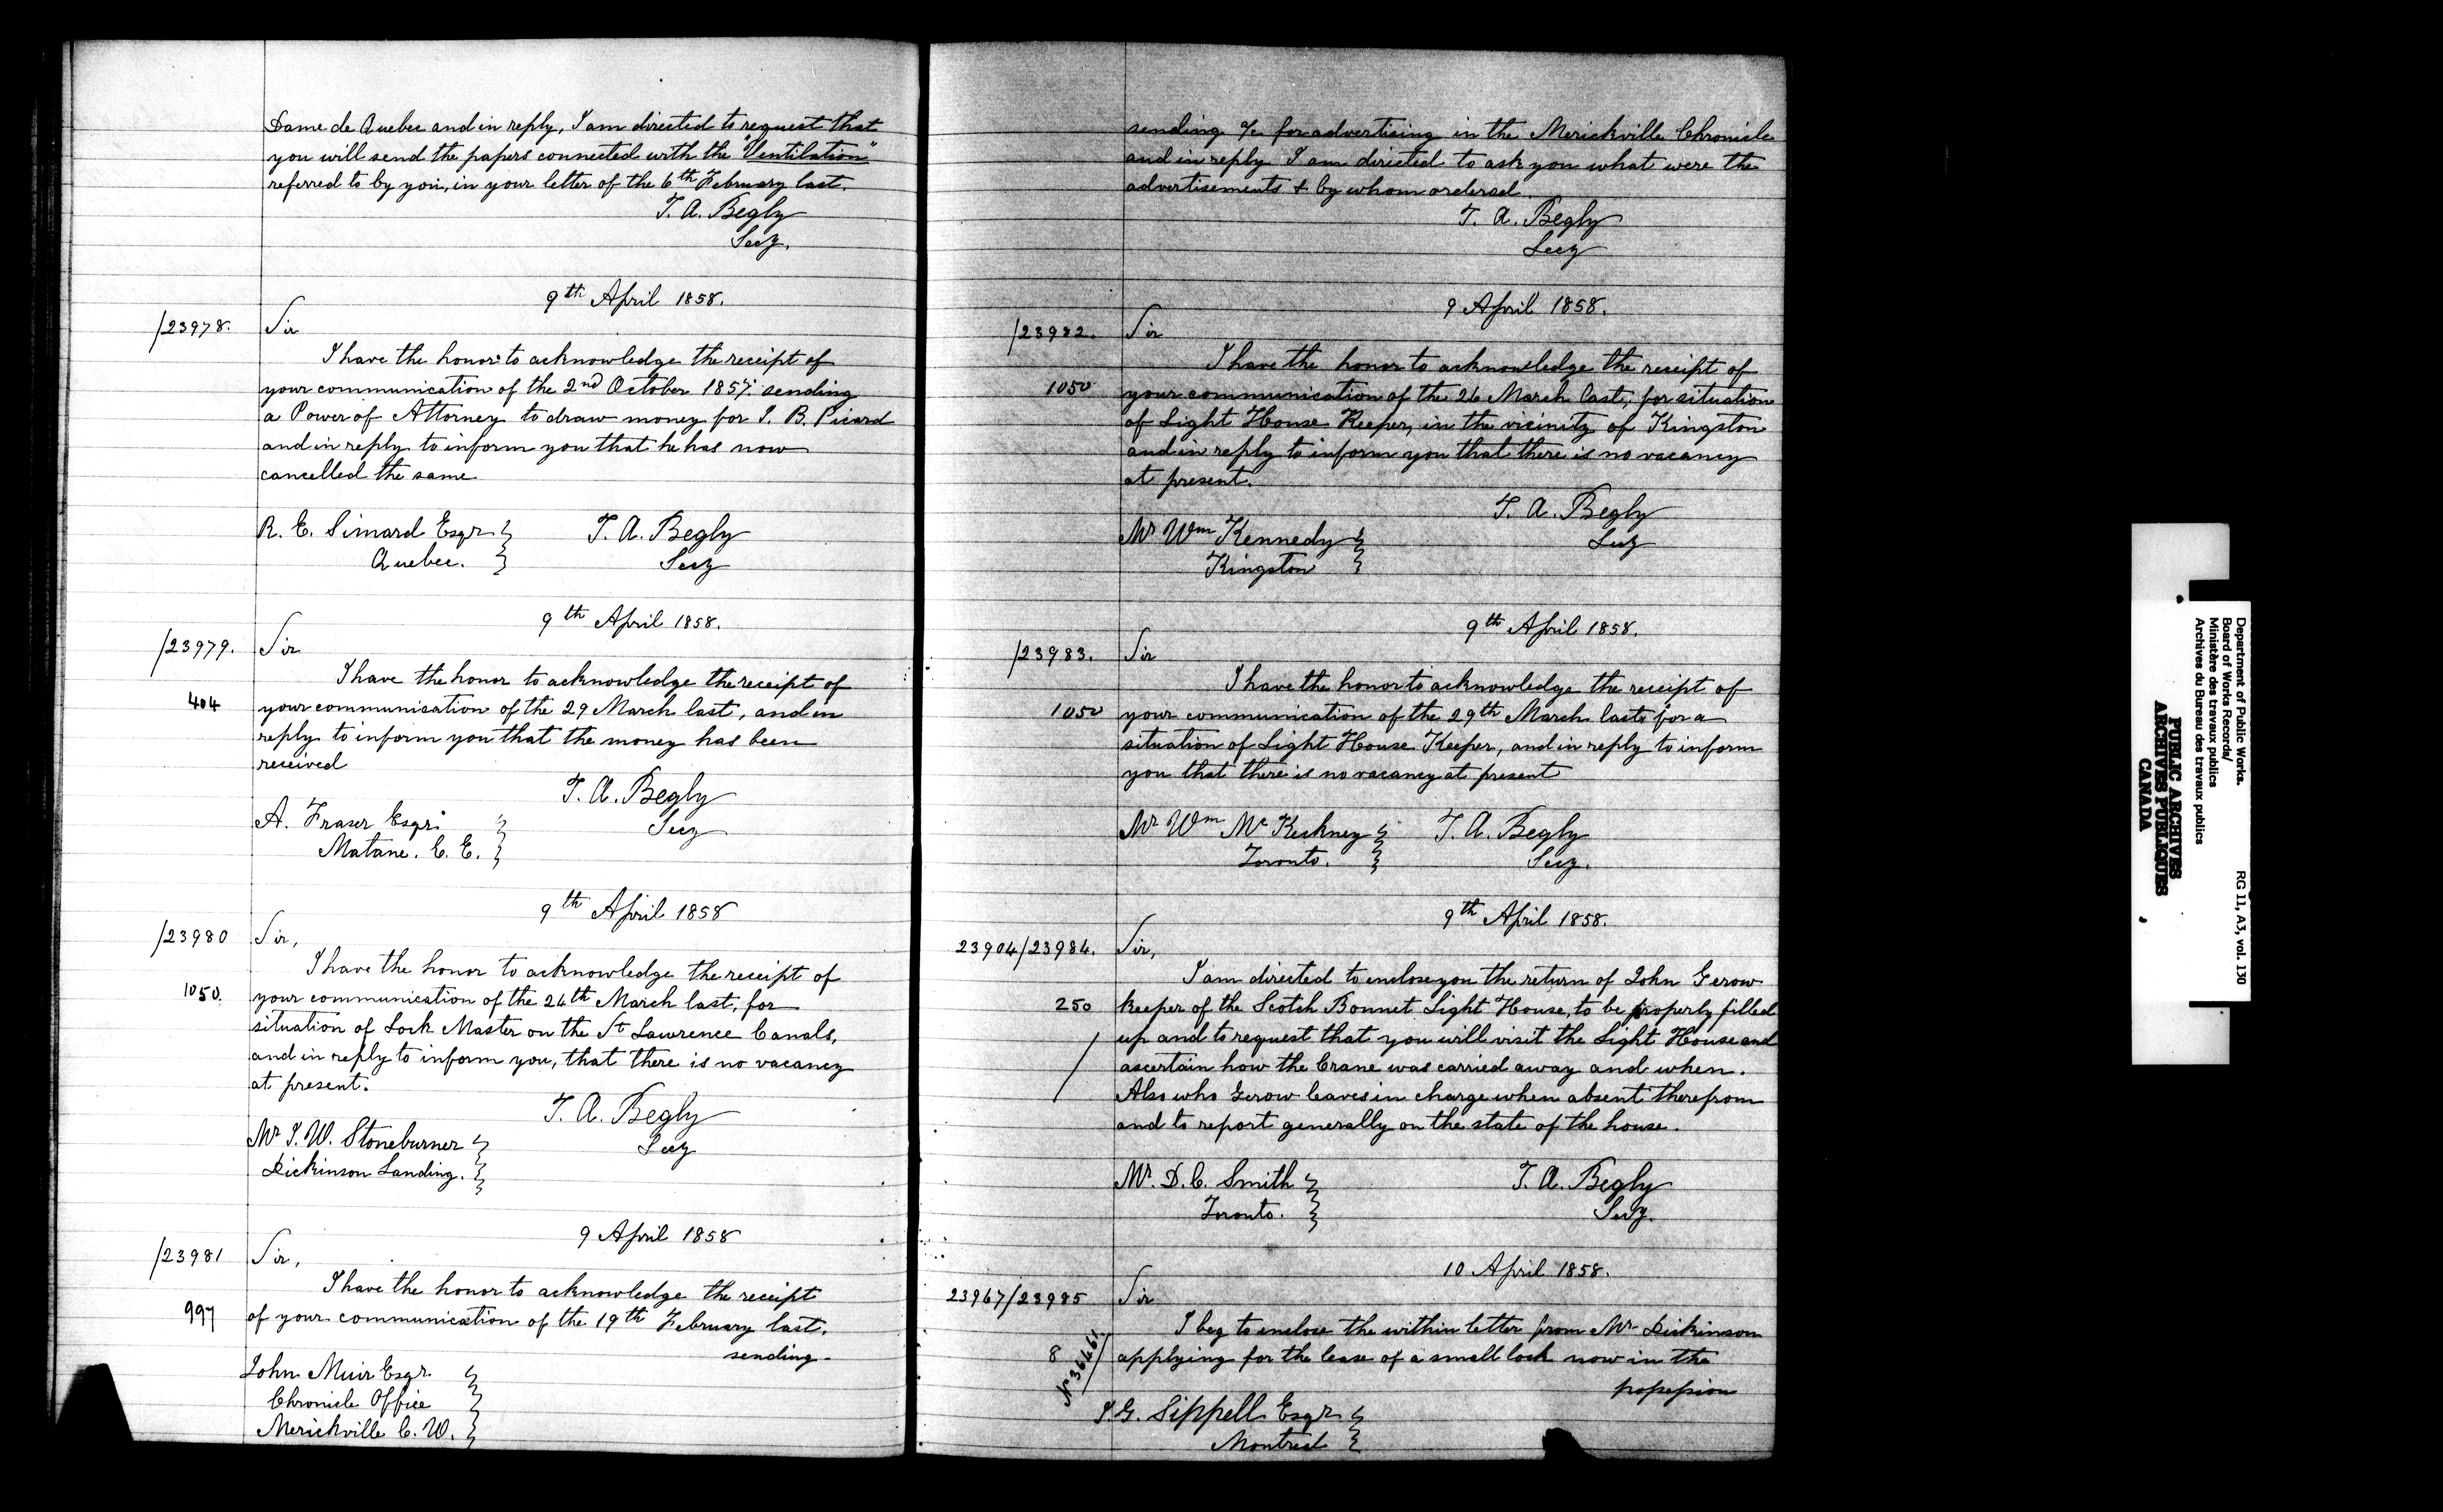 Dame de Quebec and in reply, I am directed to request that
you will send the papers connected with the "Ventilation"
referred to by you, in your letter of the 6th February last.
T. A. Begly
Secy.
9th April 1858.
/23978. Sir
I have the honor to acknowledge the receipt of
your communication of the 2nd October 1857. sending
a Power of Attorney to draw money for J. B. Picard
and in reply to inform you that he has now
cancelled the same
R. E. Simard Esqr T. A. Begly
Quebec. Secy
9th April 1858.
/23979. Sir
I have the honor to acknowledge the receipt of
404 your communication of the 29 March last, and in
reply to inform you that the money has been
received
T. A. Begly
A. Fraser Esqr. Secy
Matane. C. E.
9th April 1858
/23980 Sir,
I have the honor to acknowledge the receipt of
1050. your communication of the 26th March last, for
situation of Lock Master on the St Lawrence Canals,
and in reply to inform you, that there is no vacancy
at present.
T. A. Begly
Mr J. W. Stoneburner Secy
Dickinson Landing.
9 April 1858
/23981 Sir,
I have the honor to acknowledge the receipt
997 of your communication of the 19th February last.
sending
John Muir Esqr.
Chronicle Office
Merickville C. W.
sending a/c for advertising in the Merickville Chronicle
and in reply I am directed to ask you what were the
advertisements & by whom ordered
T. A. Begly
Secy
9 April 1858.
/23982. Sir
I have the honor to acknowledge the receipt of
1050 your communication of the 26 March last, for situation
of Light House Keeper, in the vicinity of Kingston
and in reply to inform you that there is no vacancy
at present.
T. A. Begly
Mr Wm Kennedy Secy
Kingston
9th April 1858.
/23983. Sir
I have the honor to acknowledge the receipt of
1050 your communication of the 29th March last for a
situation of Light House Keeper, and in reply to inform
you that there is no vacancy at present
Mr Wm Mc T. A. Begly
Toronto. Secy.
9th April 1858.
23904/23984. Sir,
I am directed to enclose you the return of John Gerow
250 keeper of the Scotch Bonnet Light House, to be properly filled
up and to request that you will visit the Light House and
ascertain how the Crane was carried away and when.
Also who Gerow leaves in charge when absent therefrom
and to report generally on the state of the house.
Mr. D. C. Smith T. A. Begly
Toronto. Secy.
10 April 1858.
23967/23985 Sir
I beg to enclose the within letter from Mr Dickinson
8 No 36461 applying for the lease of a small lock now in the
possession
J. G. Sippell Esqr
Montreal
Department of Public Works. RG 11, A3, vol. 130
Board of Works Records/
Ministère des travaux publics
Archives du Bureau des travaux publics
PUBLIC ARCHIVES
ARCHIVES PUBLIQUES
CANADA